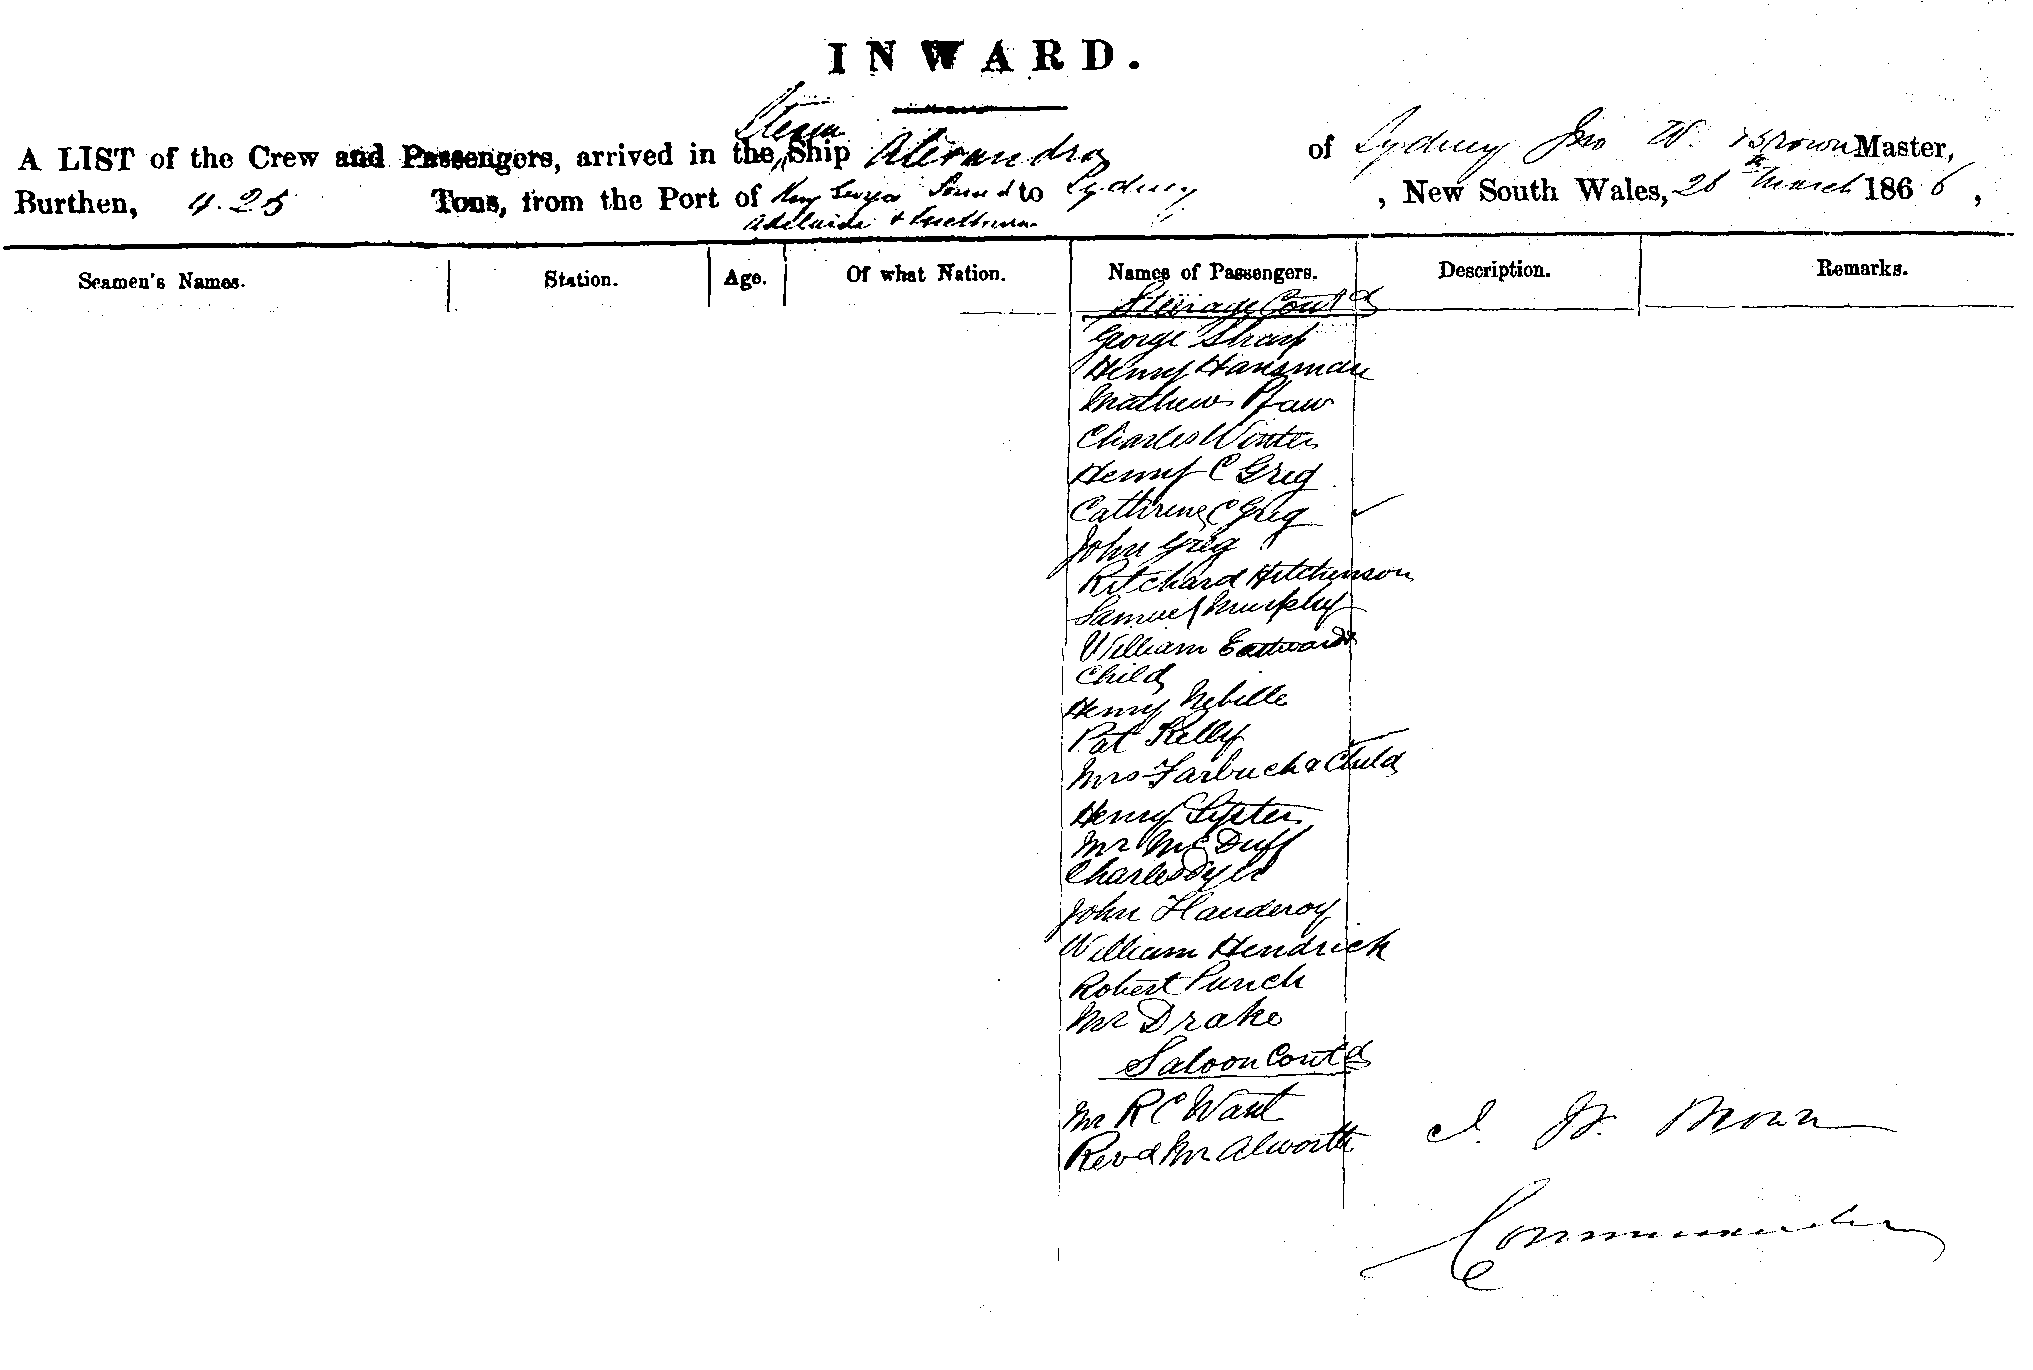 INWARD.
Steam
A LIST of the Crew and Passengers, arrived in the Ship Alexandra of Sydney Jno W. Brown Master,
Burthen, 425 Tons, from the Port of King Georges Sound to Sydney, New South Wales, 26th March 1866,
Adelaide & Melbourne
Seamen's Names. Station. Age. Of what Nation. Names of Passengers. Description. Remarks.
Steerage Contd
George Sharp
Henry Hansman
Mathew Pfaw
Charles Winter
Henry C Greig
Cathrine C Greig
John Greig
Ritchard Hitchinson
Samuel Murphy
William Eastward
Child
Henry Nebille
Pat Kelly
Mrs Farbuch & Child
Henry
Mr McDuff
Charles Dyer
John Handeroy
William Hendrick
Robert Punch
Mr Drake
Saloon Contd
Mr R C Want
Revd Mr Alworth
J. W. Brown
Commander